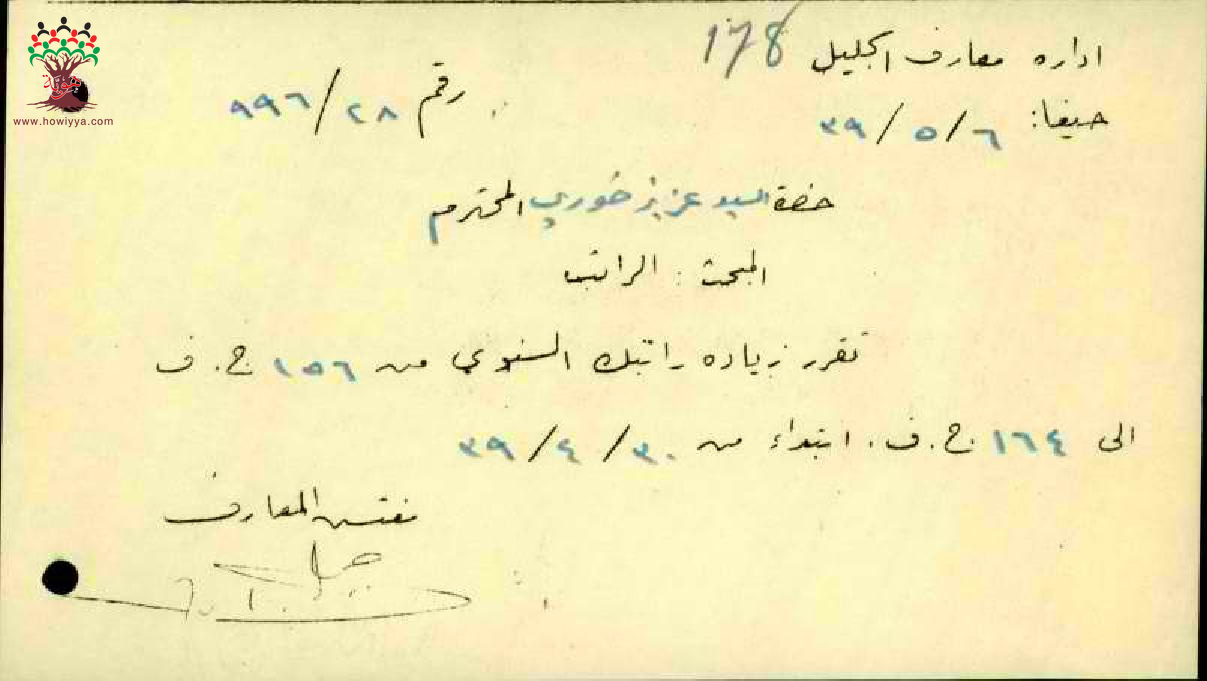 اداره معارف الجليل 178
حيفا: ٣٩/٥/٦
رقم ٩٩٦/٢٨
حضرة السيد عزيز خوري المحترم
المبحث: الراتب
تقرر زياده راتبك السنوي من ١٥٦ ج. ف
الى ١٦٤ ج. ف. ابتداء من ٣٩/٤/٣٠
مفتش المعارف
هوية
www.howiyya.com